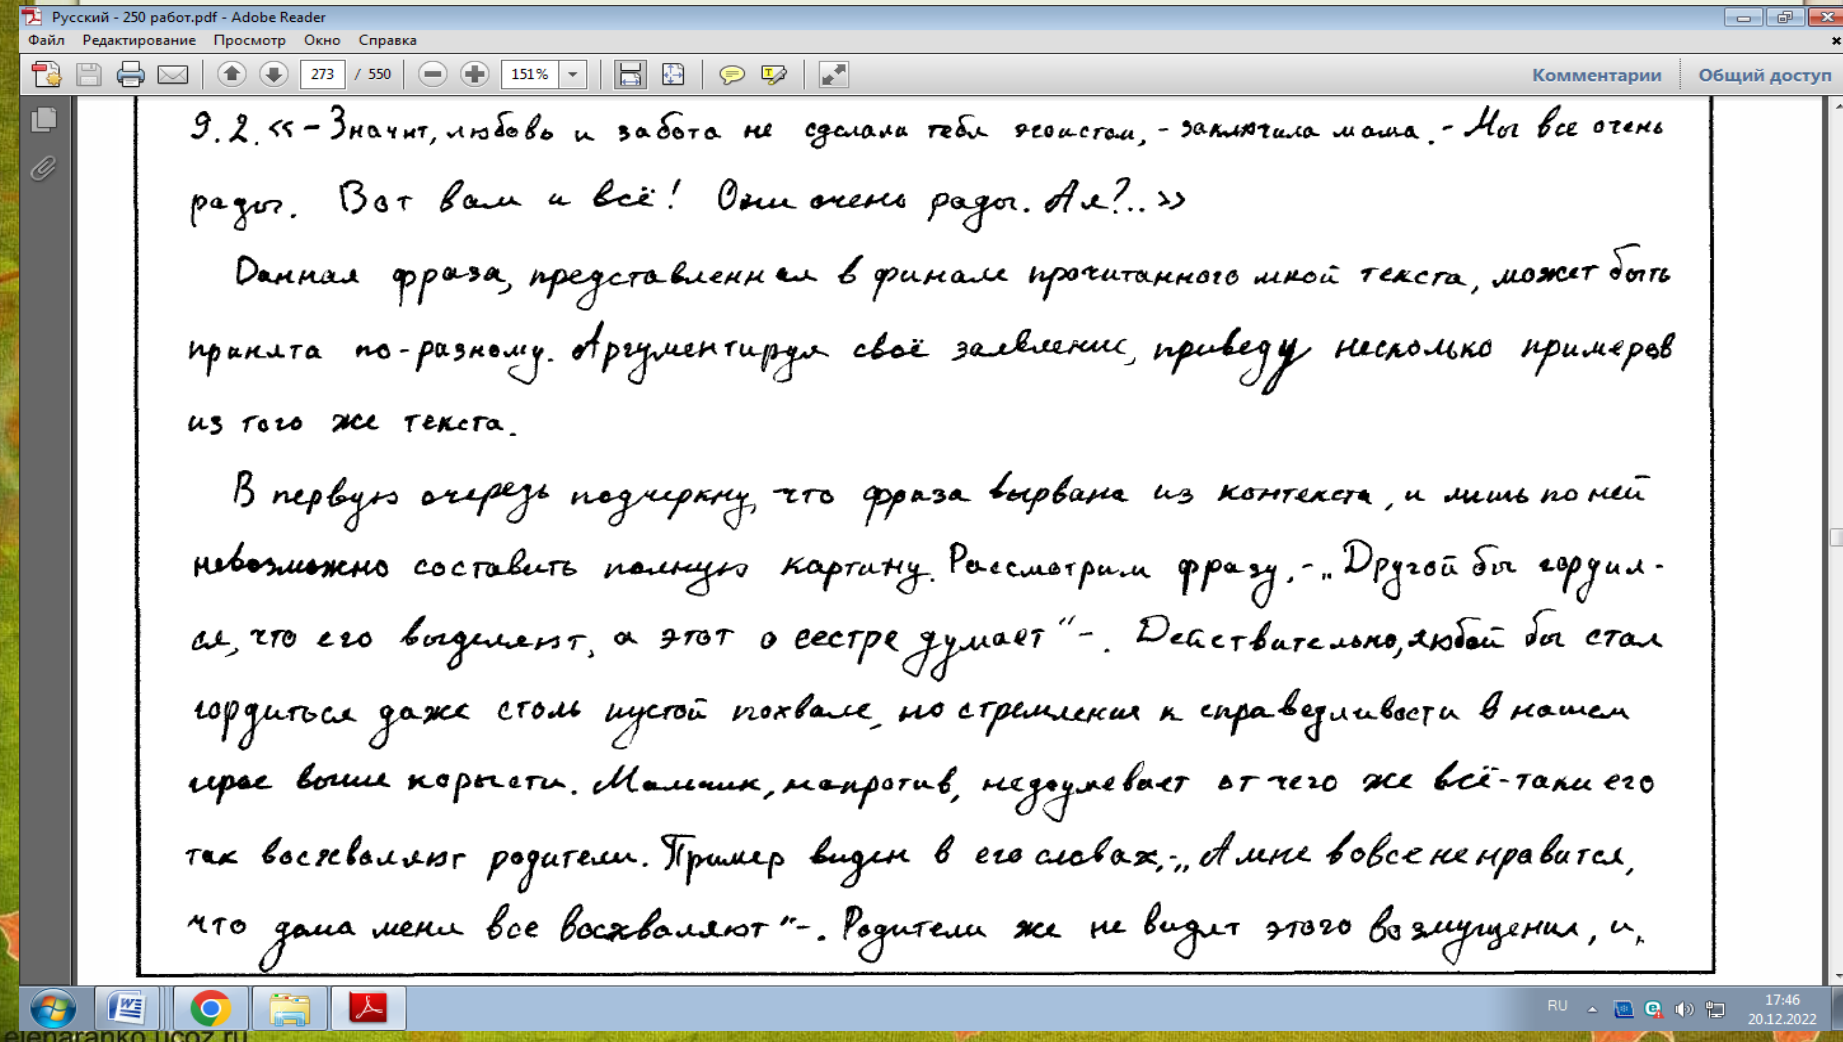 Русский - 250 работ.pdf - Adobe Reader
Файл Редактирование Просмотр Окно Справка
273 / 550 151% Комментарии Общий доступ
9.2. «– Значит, любовь и забота не сделали тебя эгоистом, – заключила мама. – Мы все очень
рады. Вот вам и всё! Они очень рады. А я?.. »
Данная фраза, представленная в финале прочитанного мной текста, может быть
принята по-разному. Аргументируя своё заявление, приведу несколько примеров
из того же текста.
В первую очередь подчеркну, что фраза вырвана из контекста, и лишь по ней
невозможно составить полную картину. Рассмотрим фразу, – „Другой бы гордил-
ся, что его выделяют, а этот о сестре думает“ –. Действительно, любой бы стал
гордиться даже столь пустой похвале, но стремления к справедливости в нашем
герое выше корысти. Мальчик, напротив, недоумевает от чего же всё-таки его
так восхваляют родители. Пример виден в его словах, – „А мне вовсе не нравится,
что дома меня все восхваляют“ –. Родители же не видят этого возмущения, и,
RU 17:46
20.12.2022
elenaranko.ucoz.ru